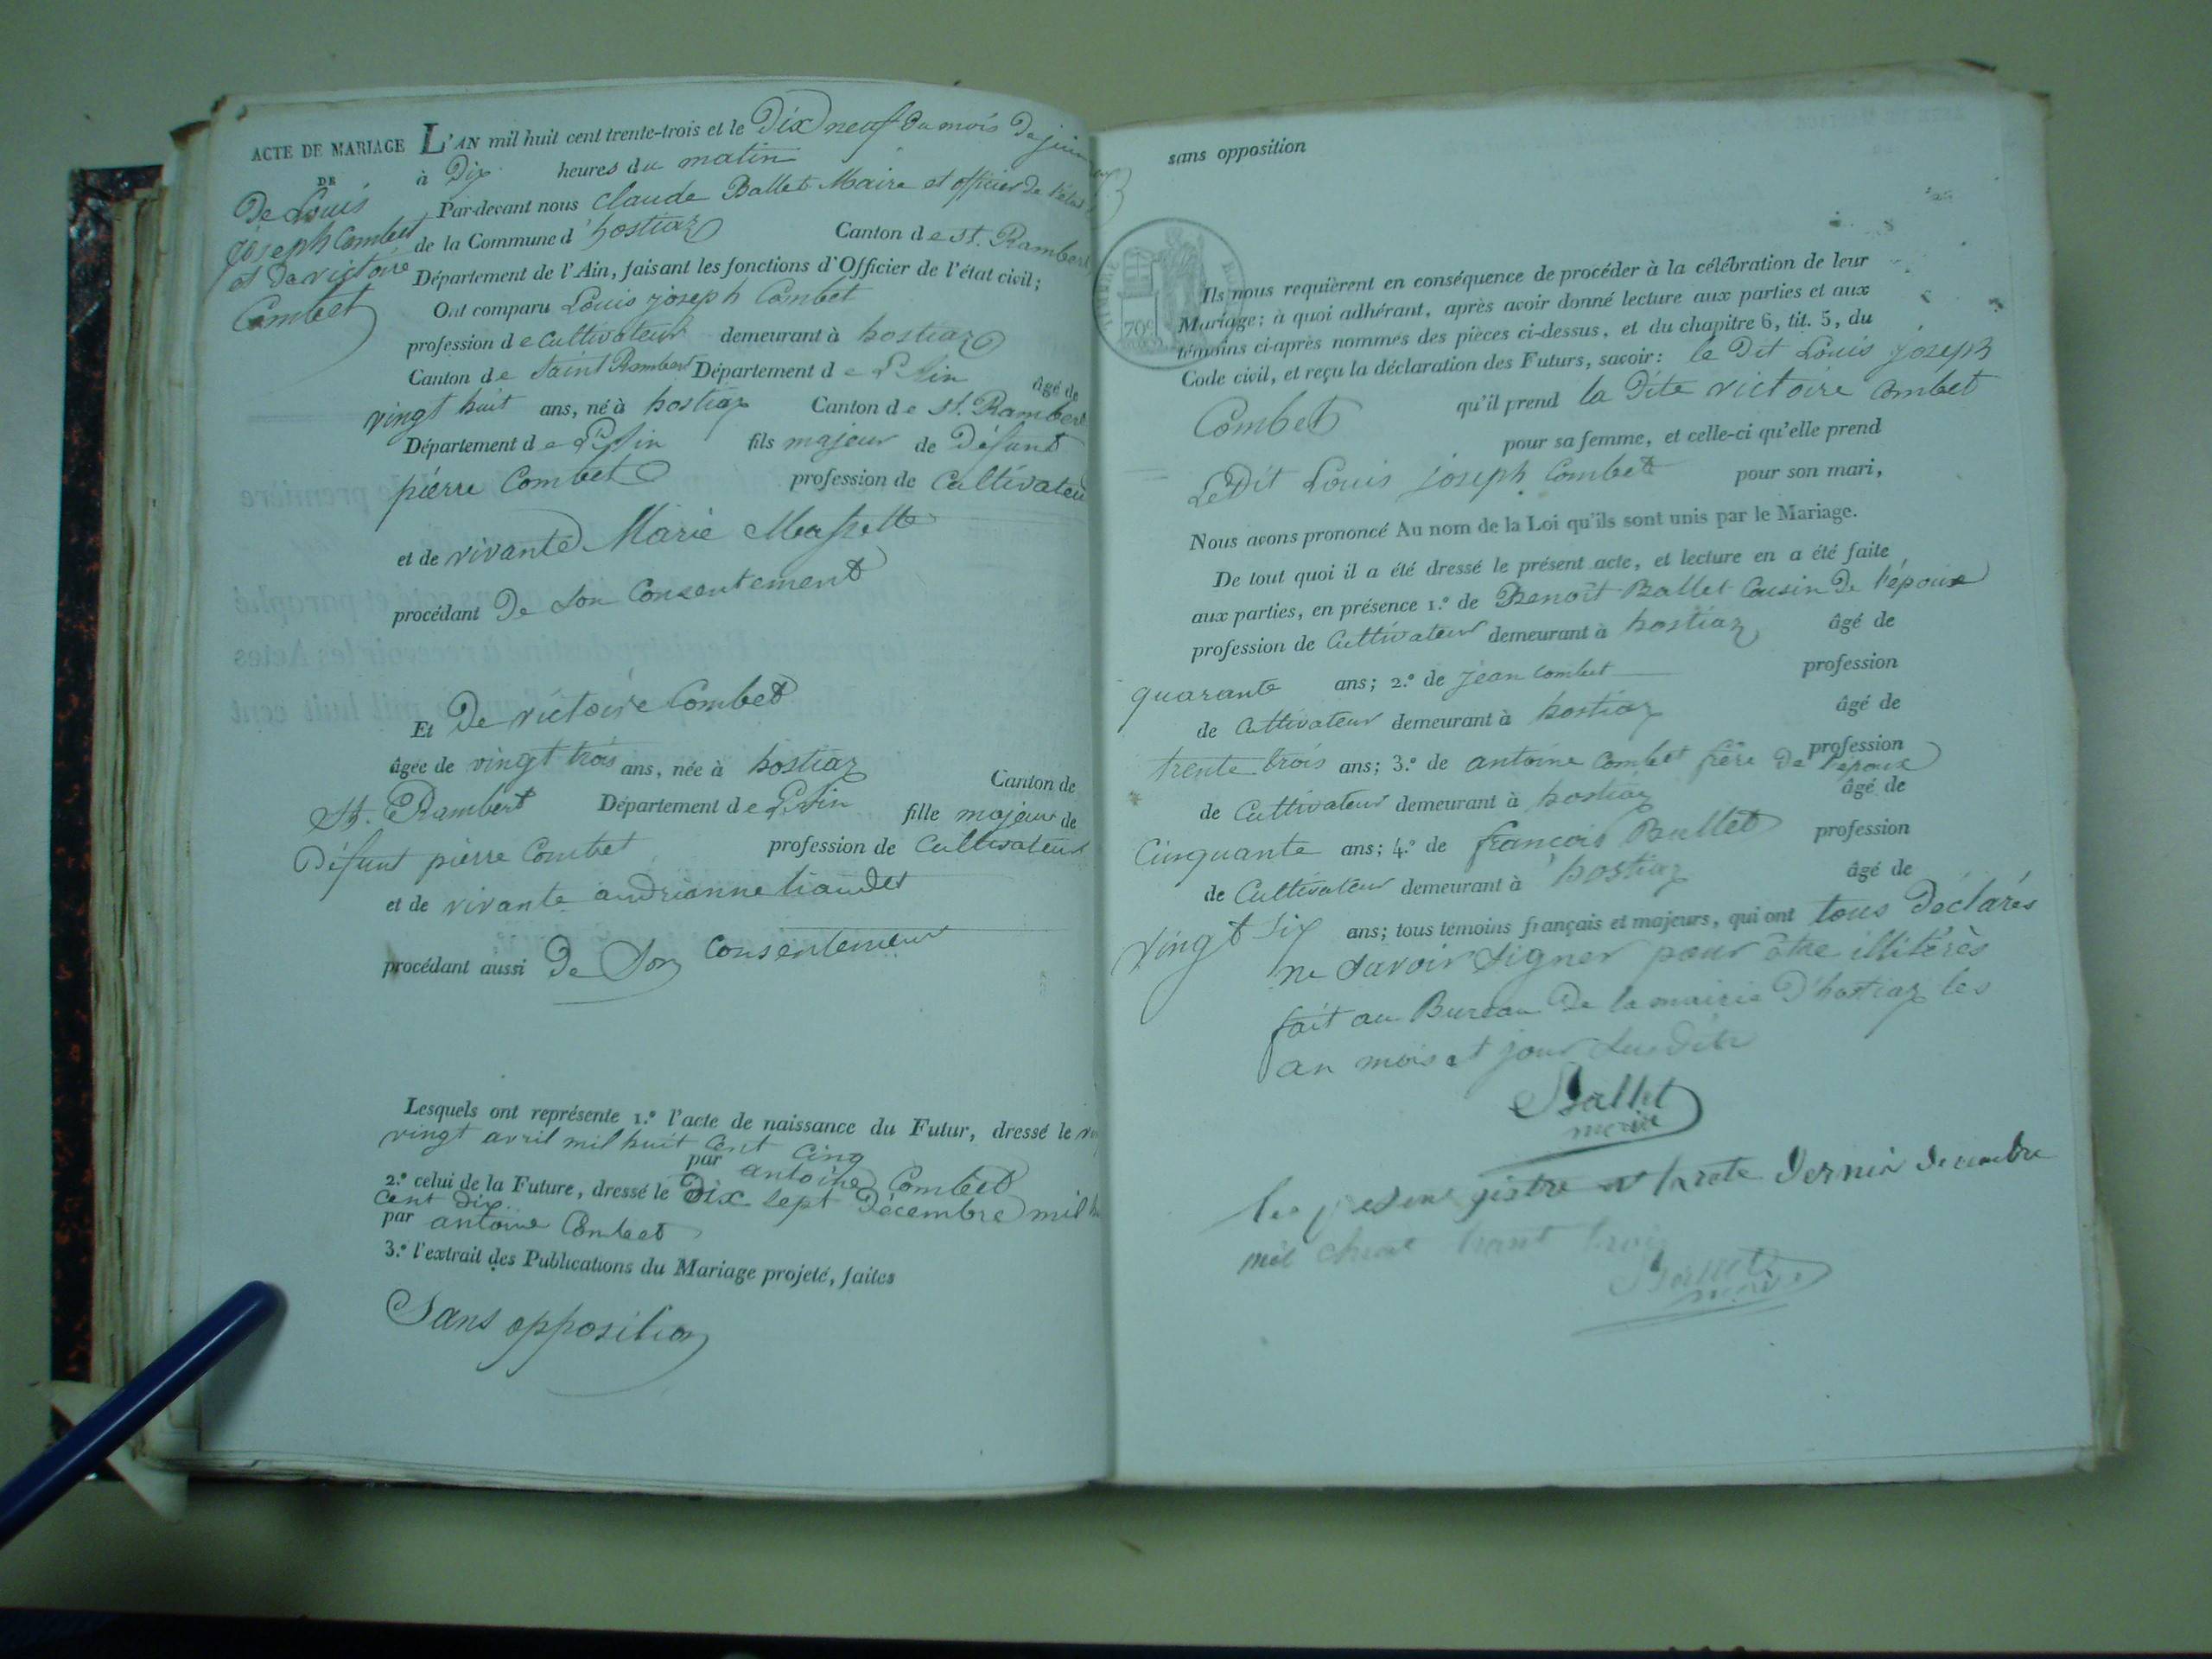 ACTE DE MARIAGE L'AN mil huit cent trente-trois et le Dix neuf du mois De
DE à Dix heures du matin
De Louis Par-devant nous Claude Ballet Maire et officier De l'état
joseph Combet de la Commune d'hostiaz Canton de St. Rambert
et De victoire Département de l'Ain, faisant les fonctions d'Officier de l'état civil;
Combet Ont comparu Louis joseph Combet
profession de Cultivateur demeurant à hostiaz
Canton de Saint Rambert Département de L'Ain âgé de
vingt huit ans, né à hostiaz Canton de St. Rambert
Département de L'Ain fils majeur de Défunt
pierre Combet profession de Cultivateur
et de vivante Marie
procédant De Son Consentement
Et De victoire Combet
âgée de vingt trois ans, née à hostiaz Canton de
St. Rambert Département de L'Ain fille majeur de
Défunt pierre Combet profession de Cultivateur
et de vivante andrianne
procédant aussi De Son Consentement
Lesquels ont représenté 1.º l'acte de naissance du Futur, dressé le
vingt avril mil huit Cent Cinq
par antoine Combet
2.º celui de la Future, dressé le Dix Sept Décembre mil
Cent Dix
par antoine Combet
3.º l'extrait des Publications du Mariage projeté, faites
Sans opposition
sans opposition
TIMBRE
70c
Ils nous requièrent en conséquence de procéder à la célébration de leur
Mariage; à quoi adhérant, après avoir donné lecture aux parties et aux
témoins ci-après nommés des pièces ci-dessus, et du chapitre 6, tit. 5, du
Code civil, et reçu la déclaration des Futurs, savoir: le Dit Louis joseph
Combet qu'il prend la Dite victoire Combet
pour sa femme, et celle-ci qu'elle prend
Le Dit Louis joseph Combet pour son mari,
Nous avons prononcé Au nom de la Loi qu'ils sont unis par le Mariage.
De tout quoi il a été dressé le présent acte, et lecture en a été faite
aux parties, en présence 1.º de Benoit Ballet Cousin De l'époux
profession de Cultivateur demeurant à hostiaz âgé de
quarante ans; 2.º de jean Combet profession
de Cultivateur demeurant à hostiaz âgé de
trente trois ans; 3.º de antoine Combet frère De l'époux profession
de Cultivateur demeurant à hostiaz âgé de
Cinquante ans; 4.º de francois Ballet profession
de Cultivateur demeurant à hostiaz âgé de
vingt Six ans; tous témoins français et majeurs, qui ont tous Déclarés
ne Savoir Signer pour être illitérés
fait au Bureau De la mairie D'hostiaz les
an mois et jour Susdits
Ballet
maire
Dernier decembre
mil
Ballet
maire